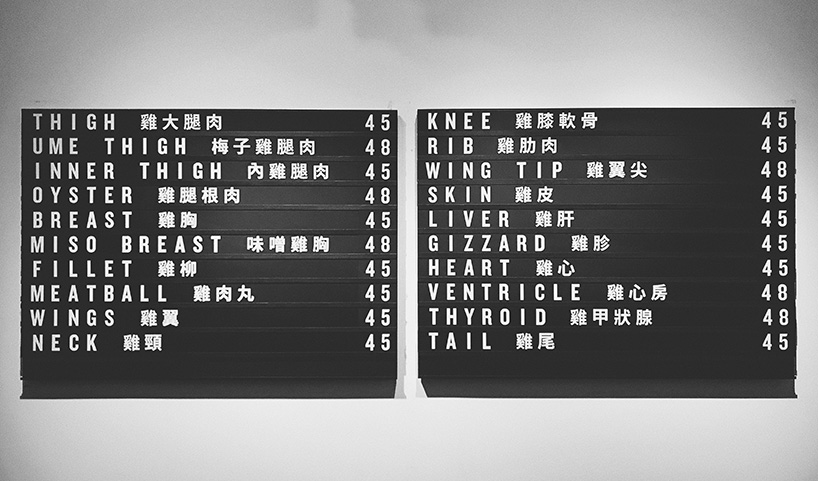 THIGH 雞大腿肉 45
UME THIGH 梅子雞腿肉 48
INNER THIGH 內雞腿肉 45
OYSTER 雞腿根肉 48
BREAST 雞胸 45
MISO BREAST 味噌雞胸 48
FILLET 雞柳 45
MEATBALL 雞肉丸 45
WINGS 雞翼 45
NECK 雞頸 45
KNEE 雞膝軟骨 45
RIB 雞肋肉 45
WING TIP 雞翼尖 48
SKIN 雞皮 45
LIVER 雞肝 45
GIZZARD 雞胗 45
HEART 雞心 45
VENTRICLE 雞心房 48
THYROID 雞甲狀腺 48
TAIL 雞尾 45